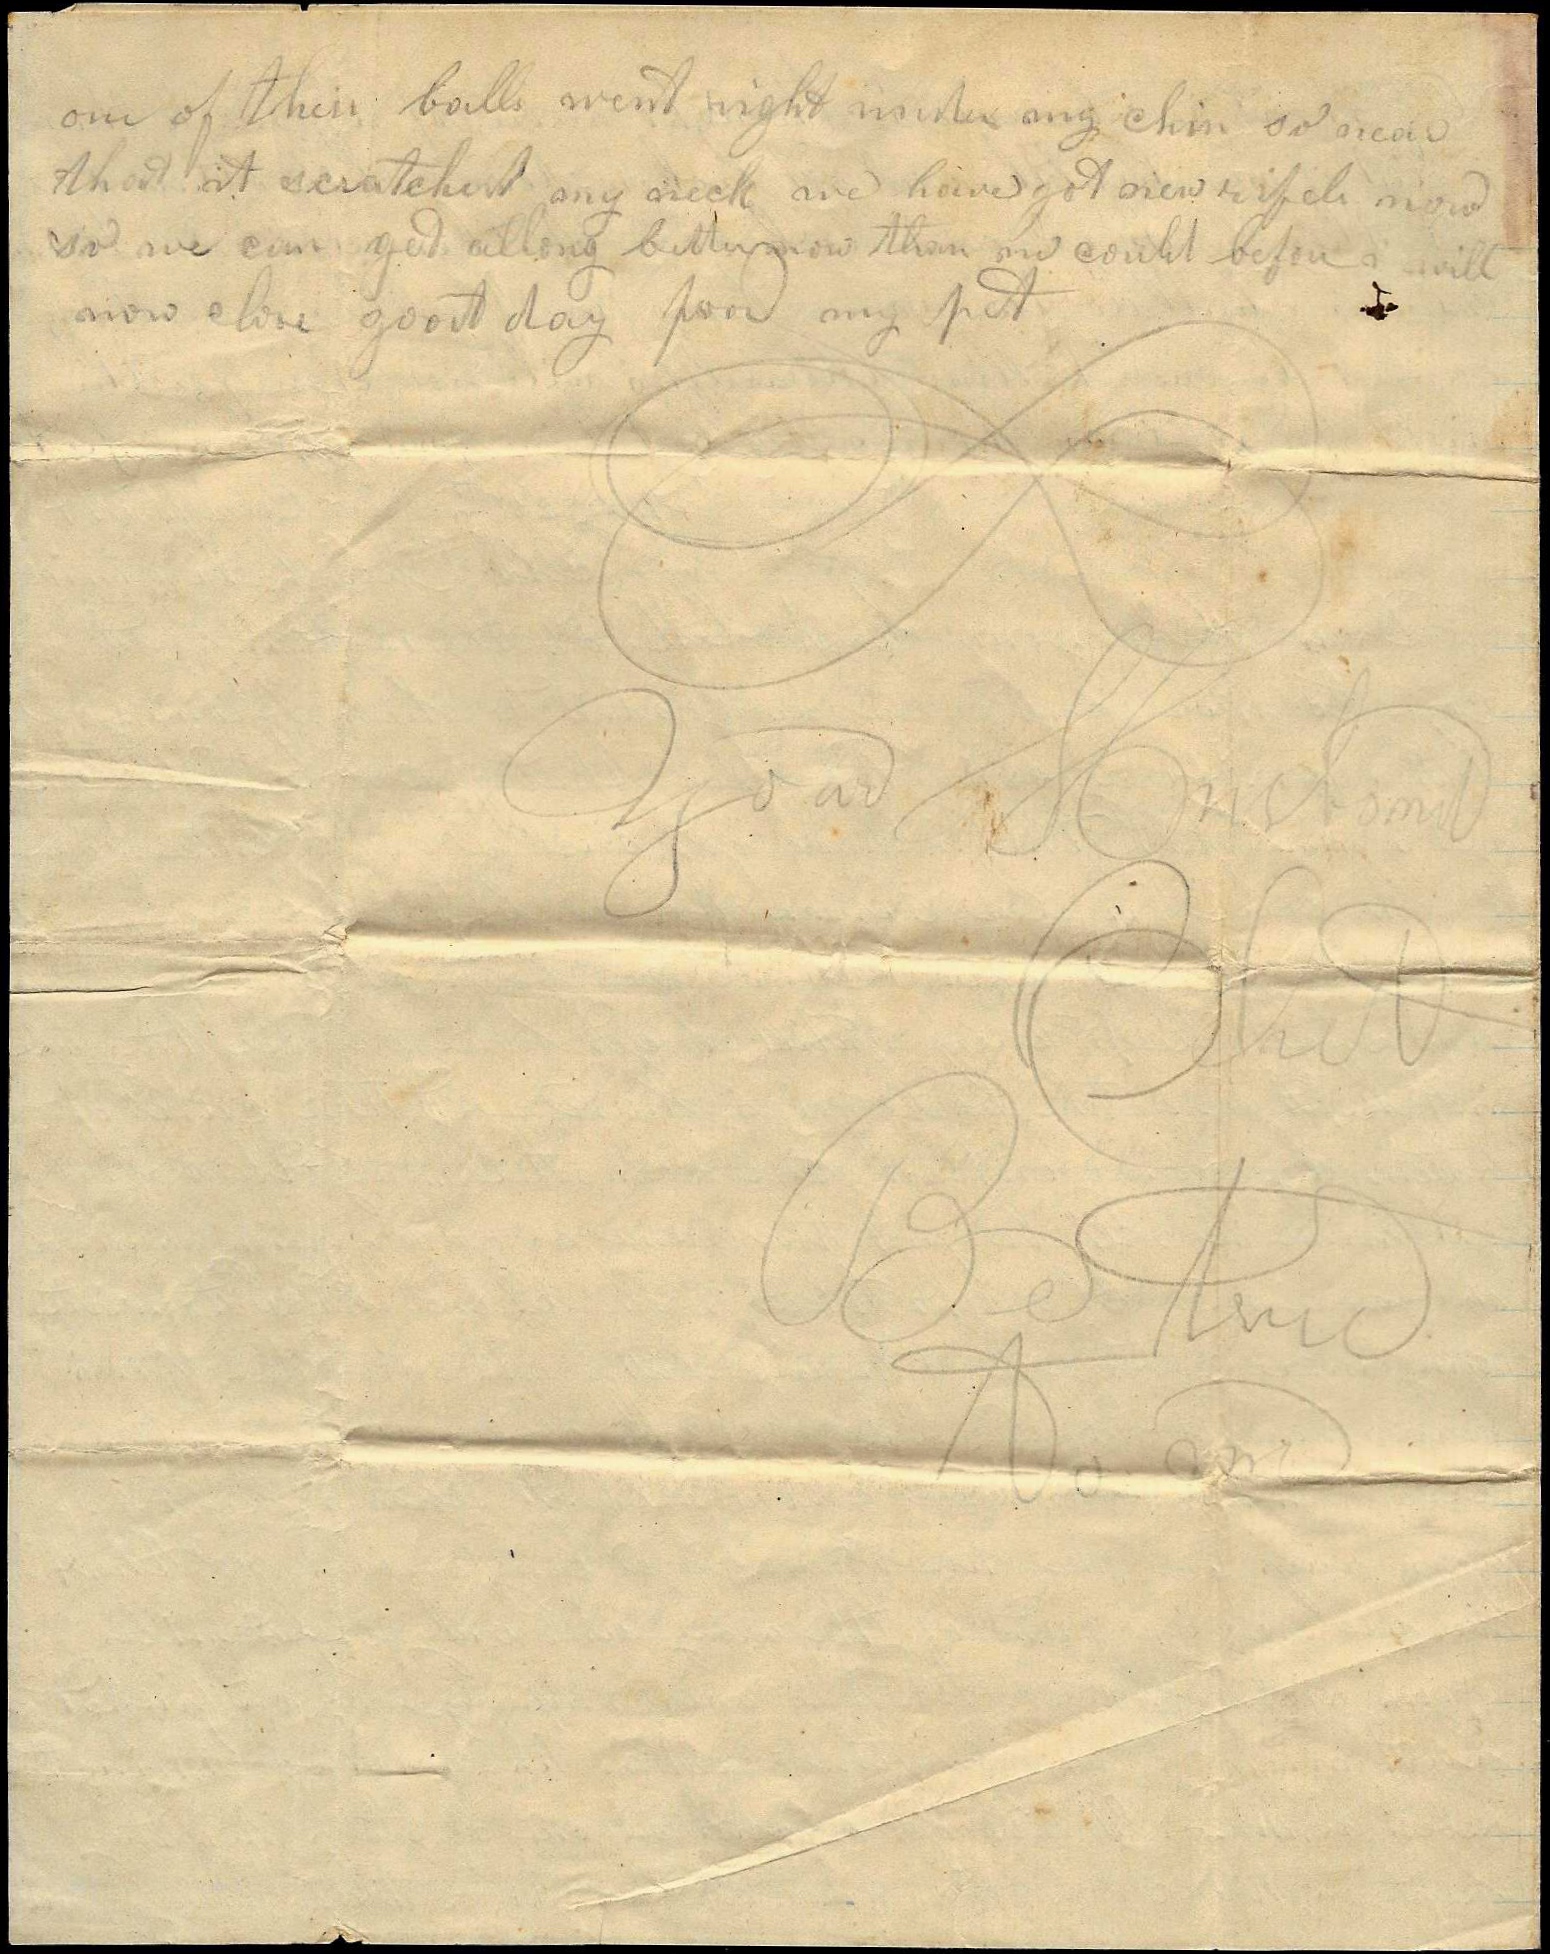 one of their balls went right under my chin so near
that it scratched my neck we have got new rifels now
so we can get allong better now than we could before i will
now close good day poor my pet
Your Husband
Chet
Be true
To me